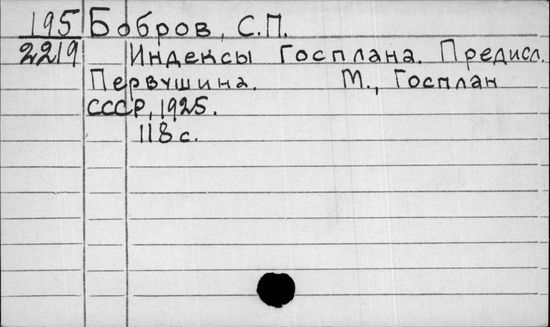 195 Бобров, С.П.
2219 Индексы Госплана. Предисл.
Первушина. М., Госплан
СССР, 1925.
118 с.